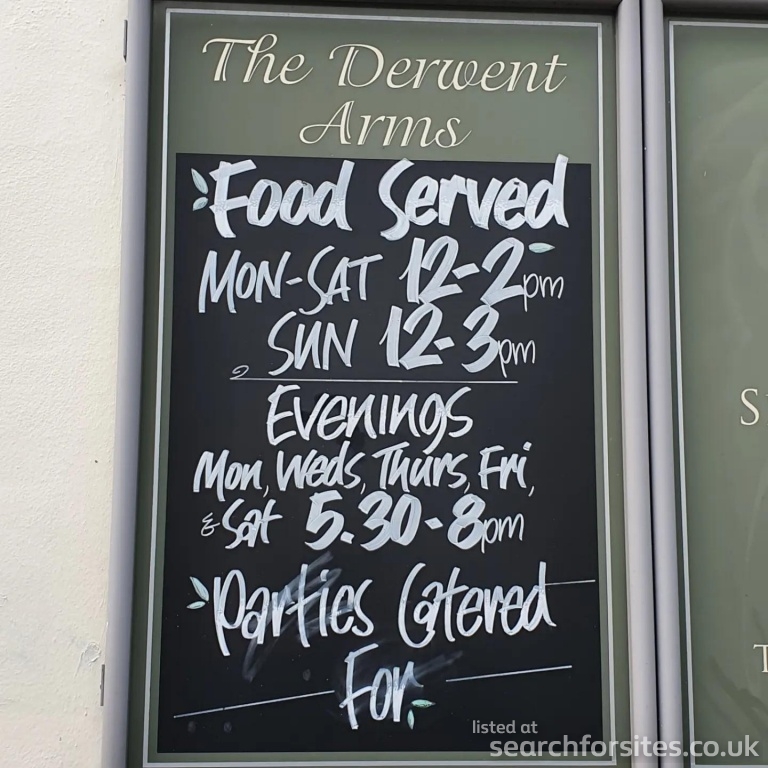 The Derwent
Arms
Food Served
MON-SAT 12-2pm
SUN 12-3pm
EVENINGS
Mon, Weds, Thurs, Fri,
& Sat 5.30-8pm
Parties Catered
For
listed at
searchforsites.co.uk
S
T